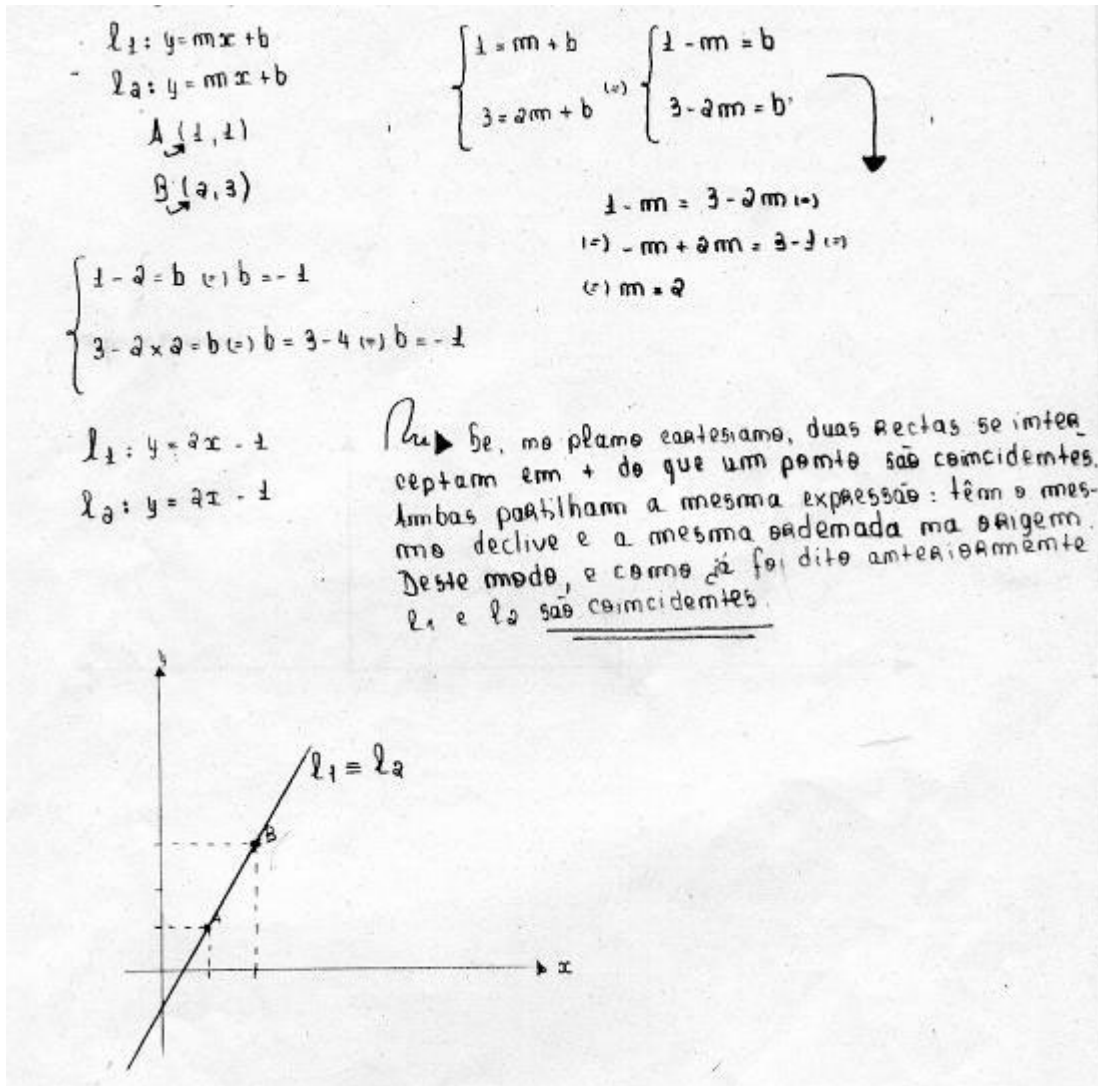 l1: y = mx + b
l2: y = mx + b
A (1, 1)
B (2, 3)
{ 1 = m + b
3 = 2m + b
(=) { 1 - m = b
3 - 2m = b
1 - m = 3 - 2m (=)
(=) - m + 2m = 3 - 1 (=)
(=) m = 2
{ 1 - 2 = b (=) b = - 1
3 - 2 x 2 = b (=) b = 3 - 4 (=) b = - 1
l1: y = 2x - 1
l2: y = 2x - 1
Se, no plano cartesiano, duas Rectas se inter
ceptam em + do que um ponto são coincidentes.
Ambas partilham a mesma expressão: têm o mes-
mo declive e a mesma ordenada na origem.
Deste modo, e como já foi dito anteriormente
l1 e l2 são coincidentes.
y
l1 ≡ l2
B
A
x